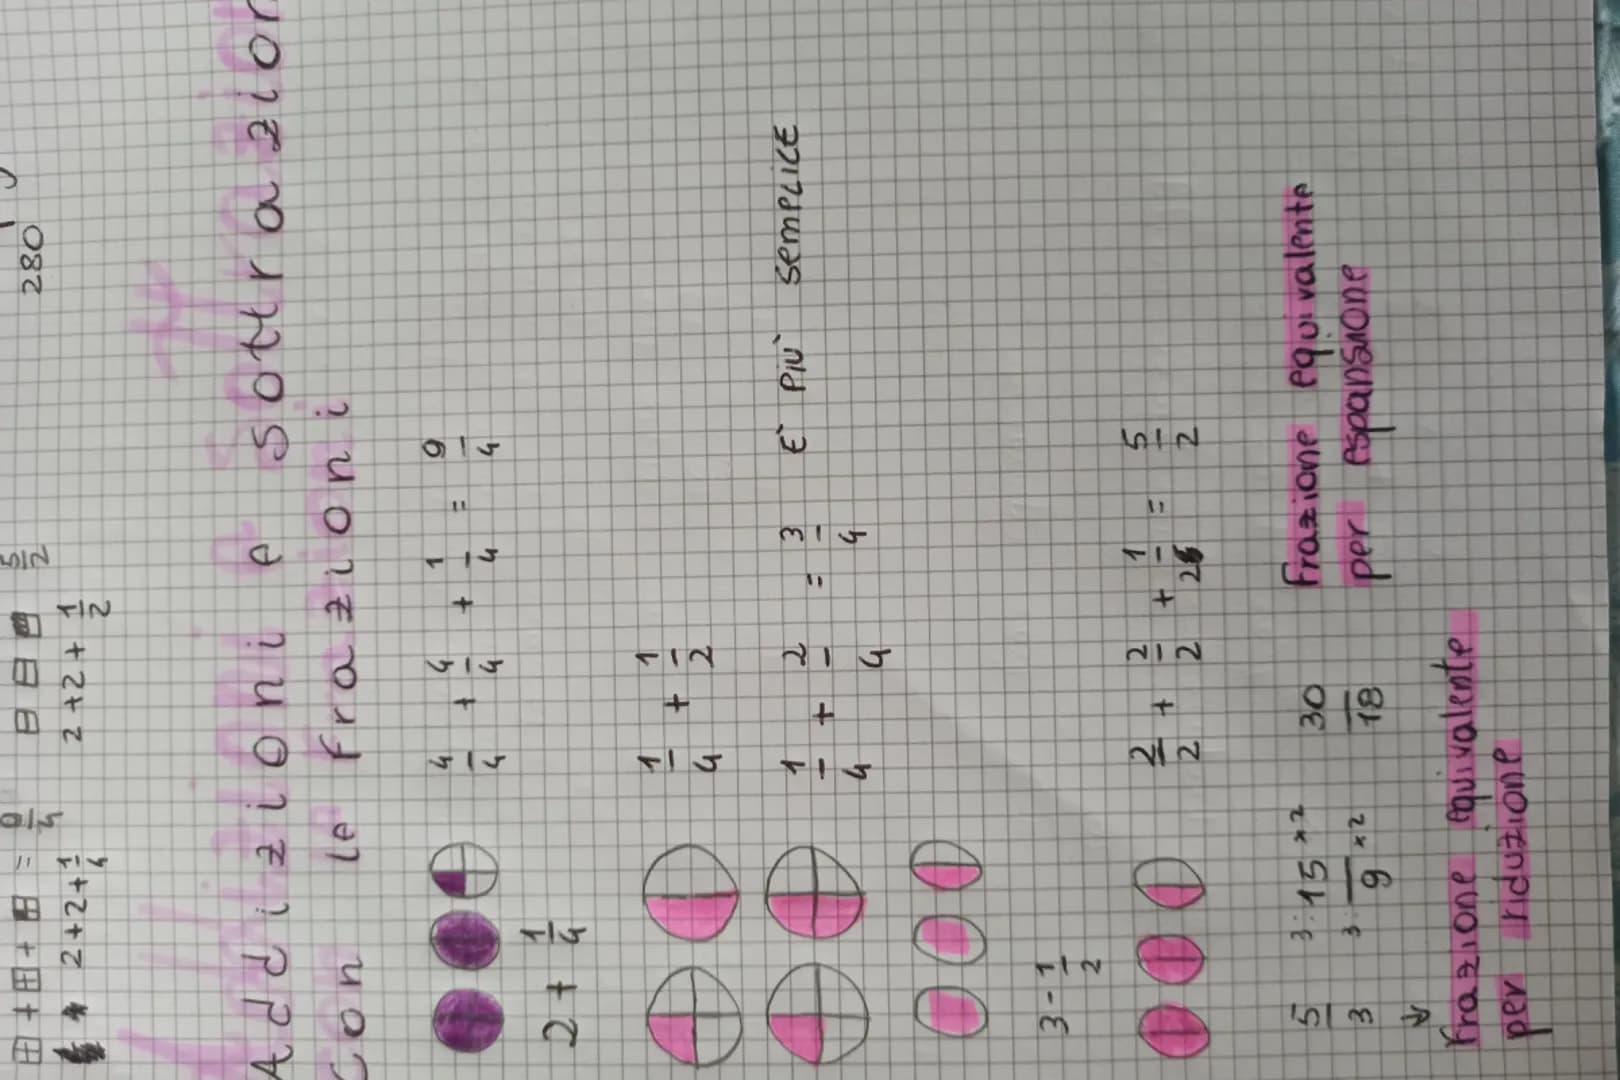 280
⊞ + ⊞ + ⊞ = 9/4
5/2
2+2+1/4
2+2+1/2
Addizioni e Sottrazion
con le frazioni
4/4 + 4/4 + 1/4 = 9/4
2 + 1/4
1/4 + 1/2
1/4 + 2/4 = 3/4 È PIÙ SEMPLICE
3 - 1/2
2/2 + 2/2 + 1/2 = 5/2
5/3 3: 15/9 ×2 30/18
3: ×2
↓
frazione equivalente
per espansione
frazione equivalente
per riduzione